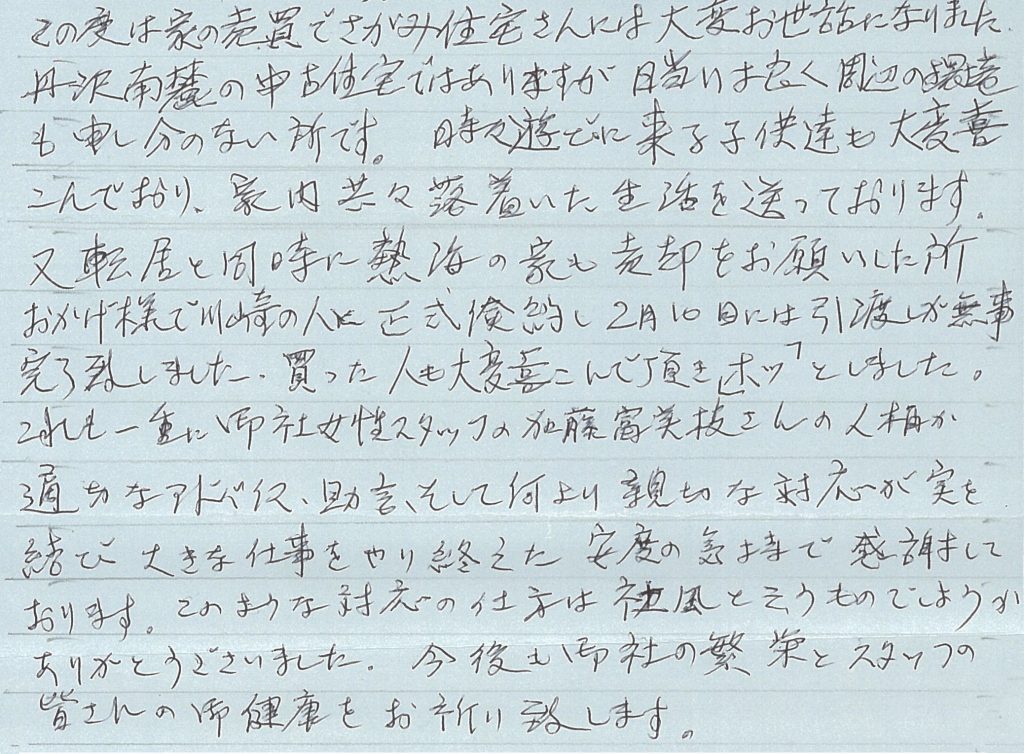 この度は家の売買でさがみ住宅さんには大変お世話になりました.
丹沢南麓の中古住宅ではありますが日当りは良く周辺の環境
も申し分のない所です。時々遊びに来る子供達も大変喜
こんでおり、家内共々落着いた生活を送っております。
又転居と同時に熱海の家も売却をお願いした所
おかげ様で川崎の人に正式倹約し2月10日には引渡しが無事
完了致しました.買った人も大変喜こんで頂き「ホッ」としました。
これも一重に御社女性スタッフの加藤富美枝さんの人柄か
適切なアドバイス、助言、そして何より親切な対応が実を
結び大きな仕事をやり終えた安度の気持で感謝して
おります。このような対応の仕方は社風と云うものでしようか
ありがとうございました.今後も御社の繁栄とスタッフの
皆さんの御健康をお祈り致します。